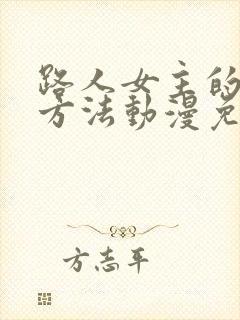 路人女主的
方法動漫免
方志平